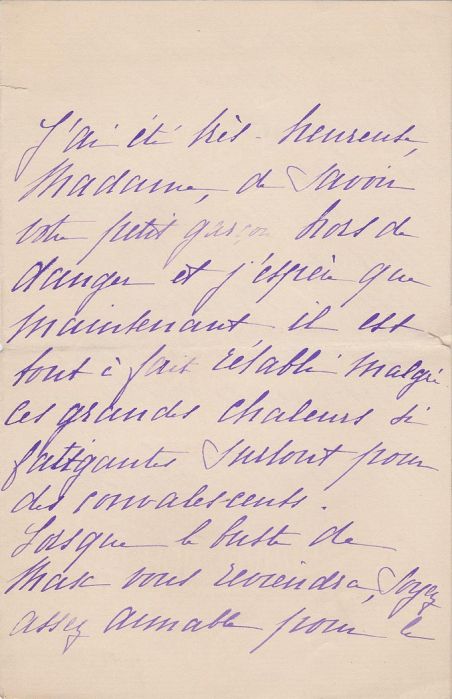 J'ai été très-heureuse,
Madame, de savoir
votre petit garçon hors de
danger et j'espère que
maintenant il est
tout à fait rétabli malgré
ces grandes chaleurs si
fatigantes surtout pour
des convalescents.
Lorsque le buste de
Max vous reviendra, soyez
assez aimable pour le